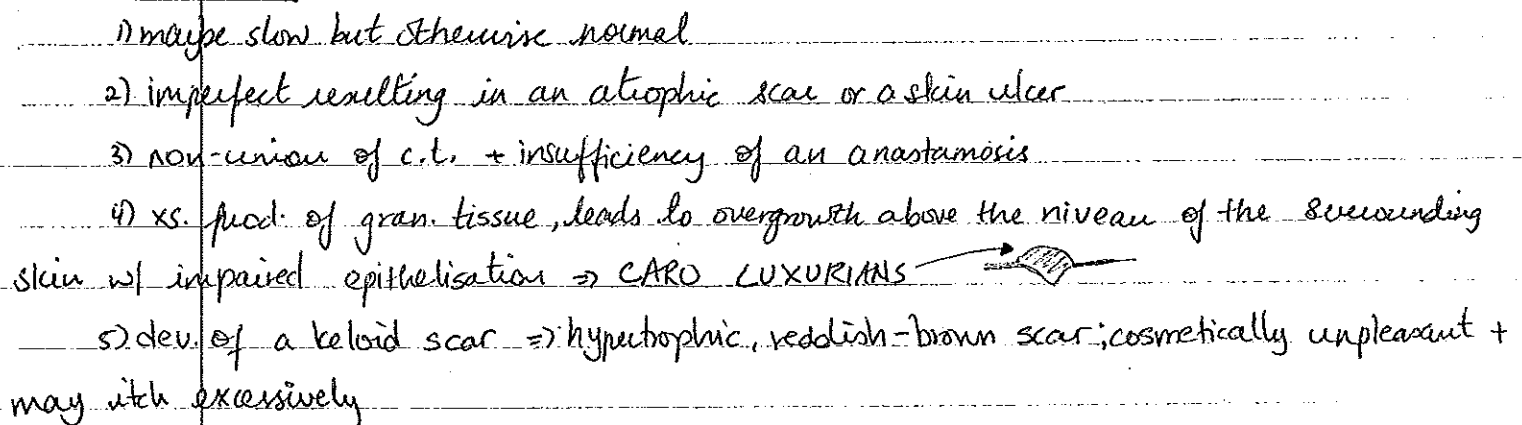 1) maybe slow but otherwise normal
2) imperfect resulting in an atrophic scar or a skin ulcer
3) non-union of c.t. + insufficiency of an anastamosis
4) xs. prod. of gran. tissue, leads to overgrowth above the niveau of the surrounding
skin w/ impaired epithelisation ⇒ CARO LUXURIANS
5) dev. of a keloid scar ⇒ hypertrophic, reddish-brown scar; cosmetically unpleasant +
may itch excessively